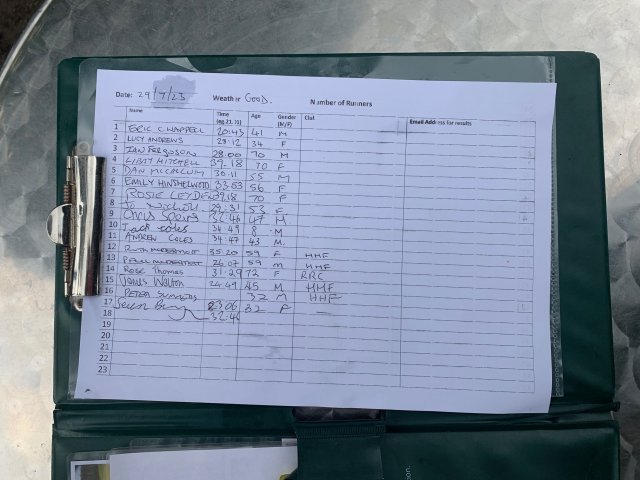 Date: 29/7/23 Weather GOOD. Number of Runners
Name Time (eg 21.31) Age Gender (M/F) Club Email Address for results
1 ERIC CHAPPELL 20:43 41 M
2 LUCY ANDREWS 23:12 34 F
3 IAN FERGUSON 28:00 70 M
4 LIBBY MITCHELL 39.18 70 F
5 DAN MCCALLUM 30.11 55 M
6 EMILY 33.53 56 F
7 ROSIE 39.18 70 F
8 Jo 29:31 53 F
9 Chris Spears 32.46 47 M
10 Jack Coles 34 49 8 M
11 ANDREW COLES 34:47 43 M.
12 Ruth 35.20 59 F HHF
13 26.07 59 M HHF
14 Rose Thomas 31.29 72 F RRC
15 Walton 24.49 45 M HHF
16 PETER 32 M HHF
17 23.06 32 F
18
19
20
21
22
23